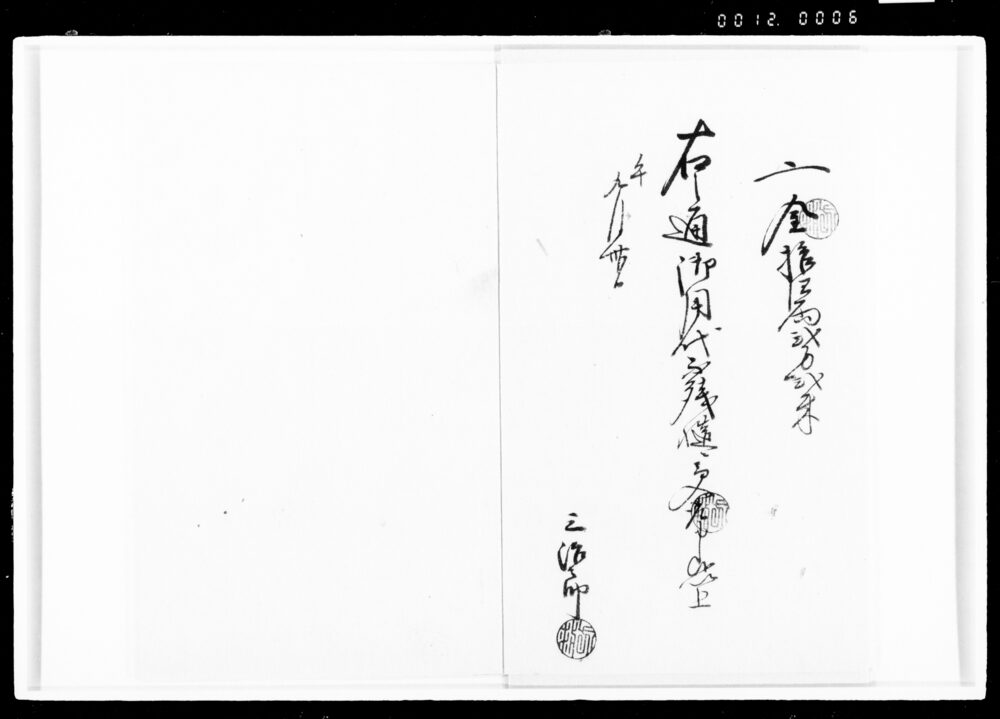 0012. 0006
一金拾三両弐分弐朱
右之通御用代不残慥ニ受取申候以上
午
九月廿日
三治郎